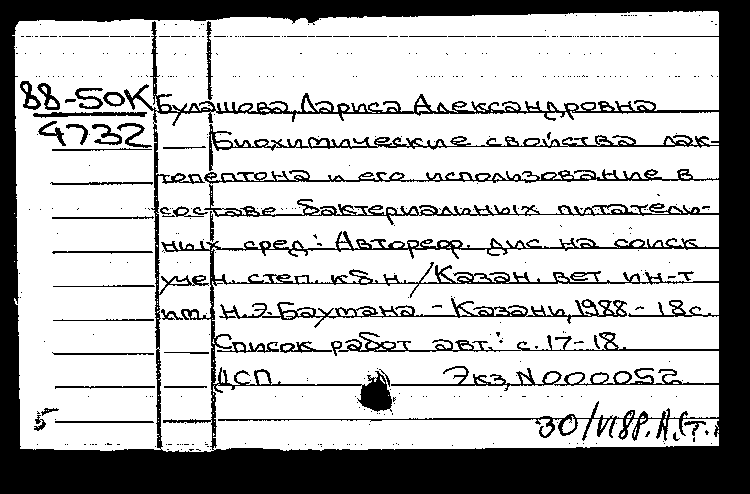 88-50К Булашова, Лариса Александровна
4732 Биохимические свойства лак-
топептона и его использование в
составе бактериальных питатель-
ных сред: Автореф. дис. на соиск
учен. степ. к.б.н. / Казан. вет. ин-т
им. Н.Э. Баумана. - Казань, 1988. - 18 с.
Список работ авт.: с. 17-18.
ДСП. Экз. N 000052
5 30/VI88.